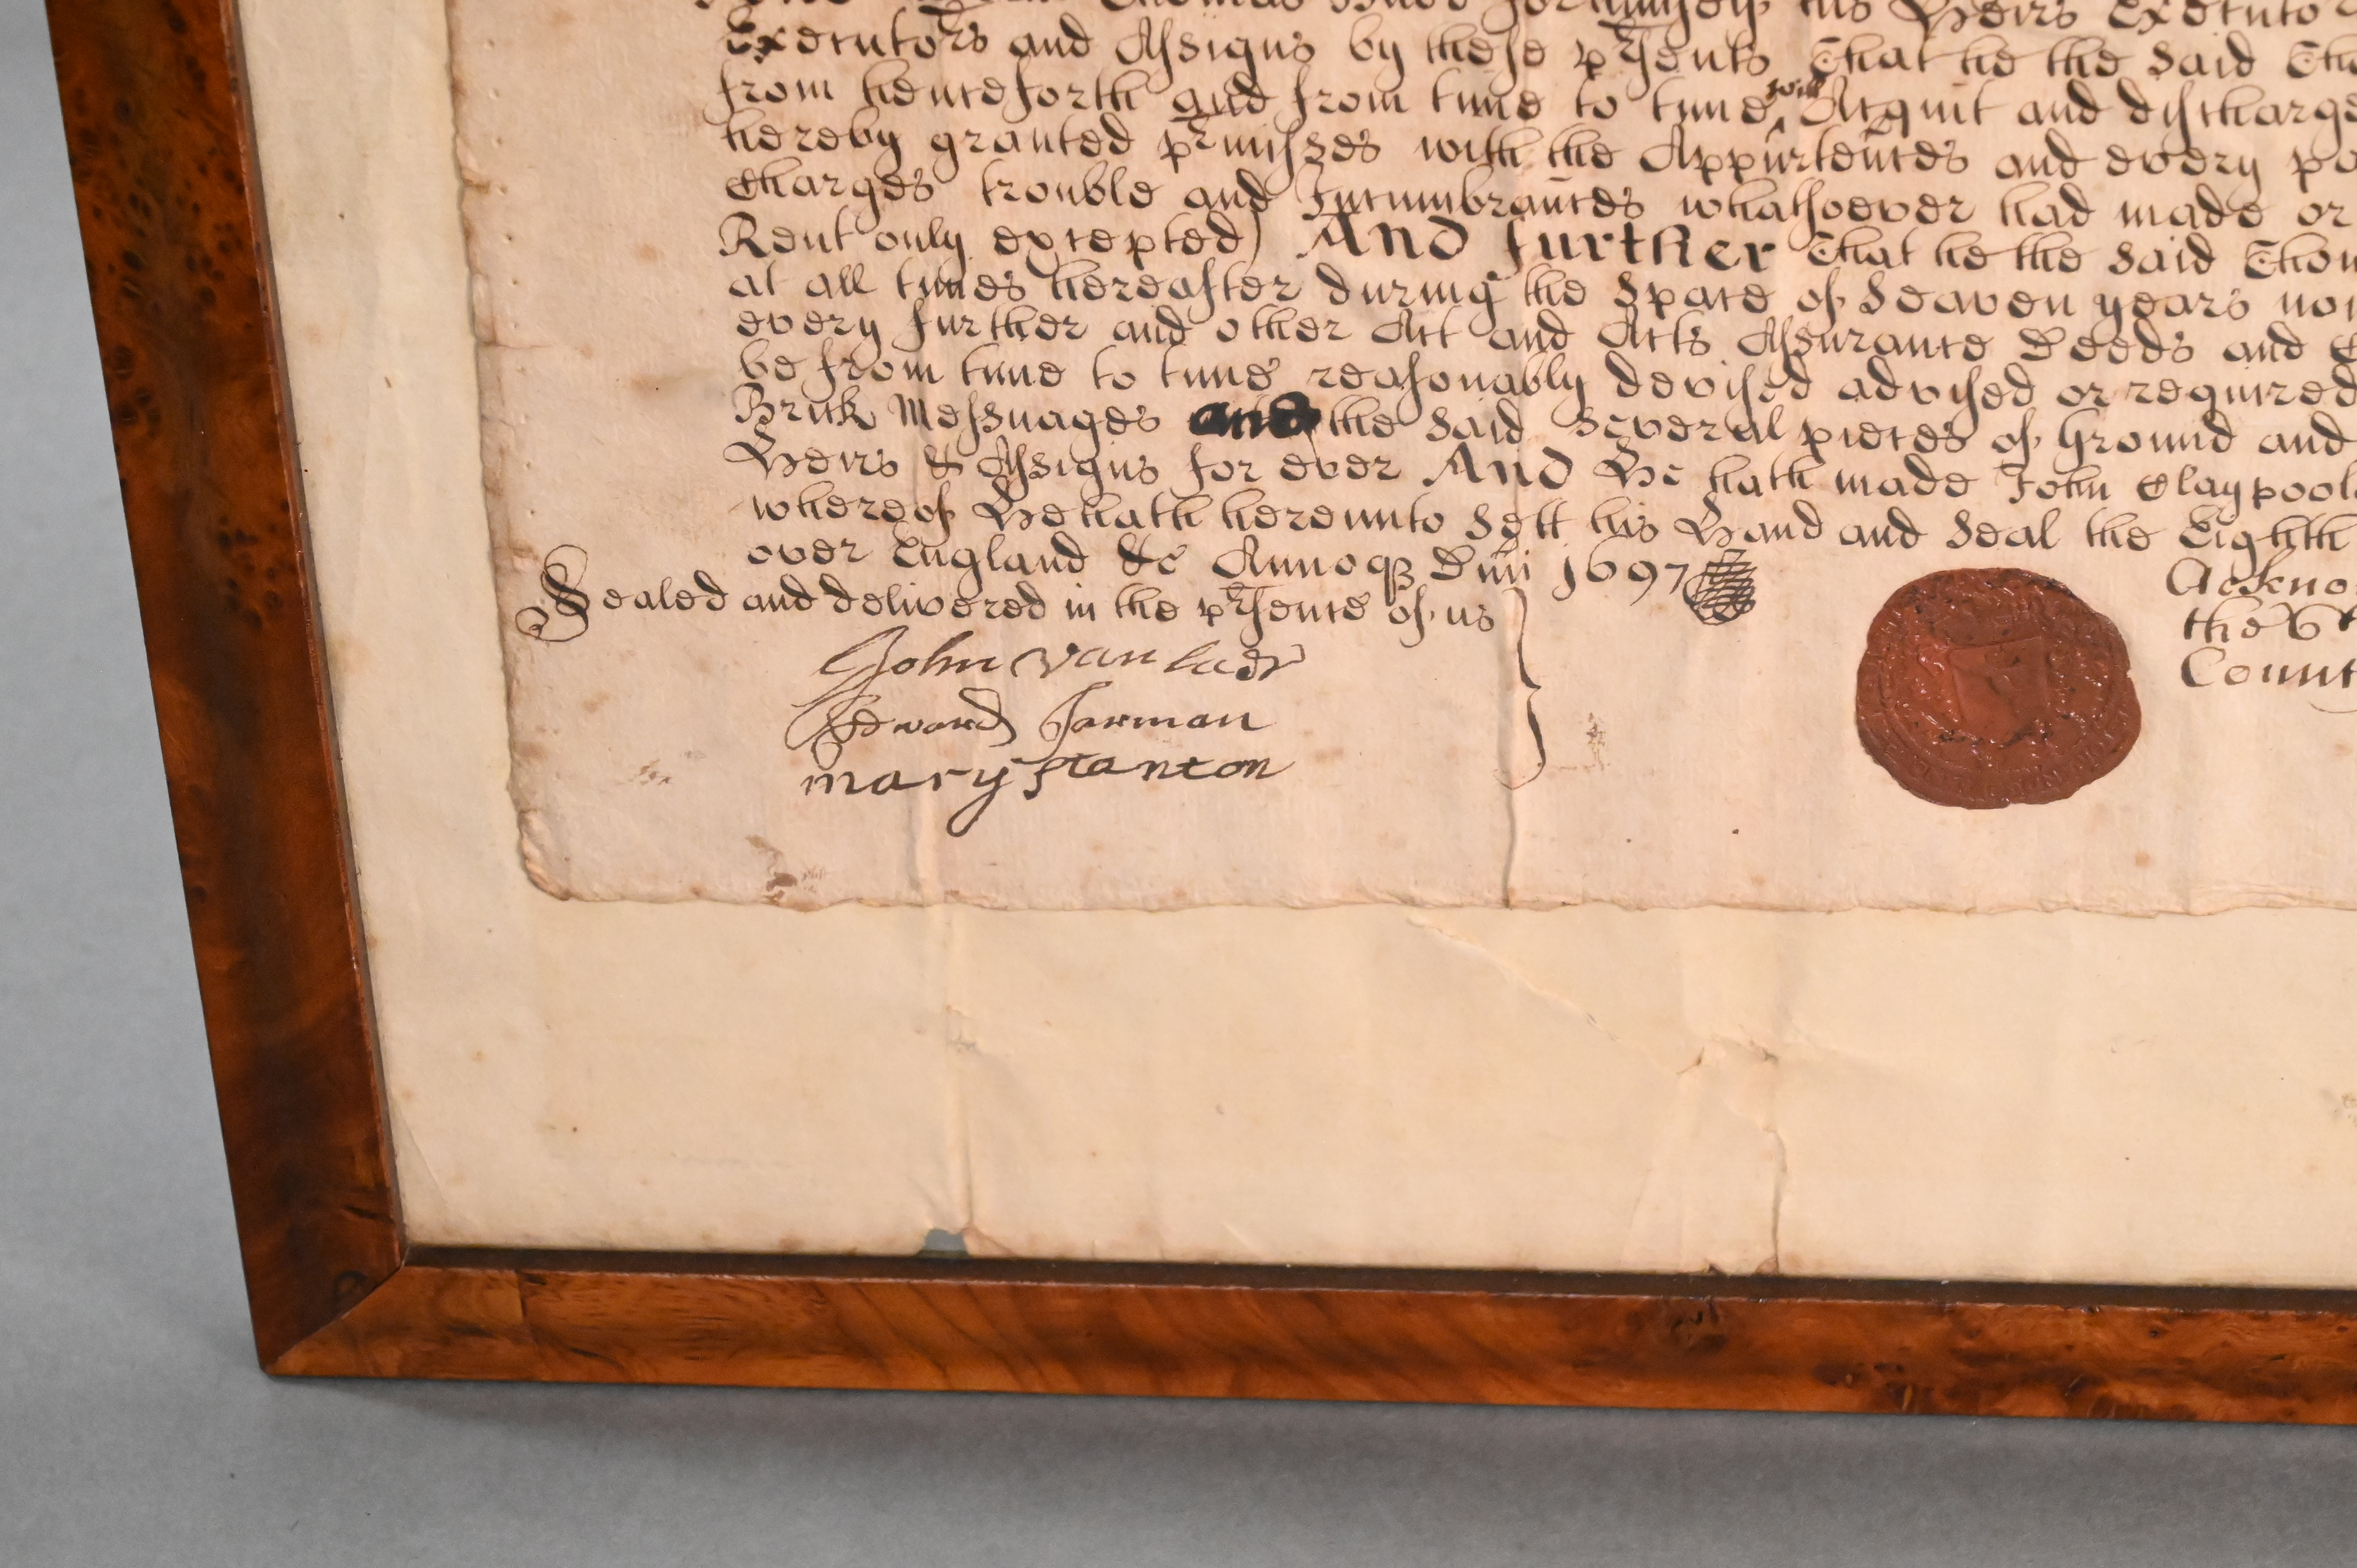 Thomas his Heirs Executo
Executors and Assigns by these prsents That he the said Tho
from henceforth and from time to time will Acquit and discharge
hereby granted prmisses with the Appurtences and every pa
Charges trouble and Incumbrances whatsoever had made or
Rent only excepted) And further That he the said Thom
at all times hereafter during the space of Seaven years no
every further and other Act and Acts Assurance Deeds and
be from time to time reasonably devised advised or required
Brick Messuages and the said several pieces of Ground and
Heirs & Assigns for ever And He hath made John Claypool
whereof He hath hereunto Sett his Hand and Seal the Eighth
over England &c Annoq Dni 1697
Sealed and delivered in the prsence of us
John Van laer
Edward Jarman
mary Stanton
Ackno
the 6t
Count